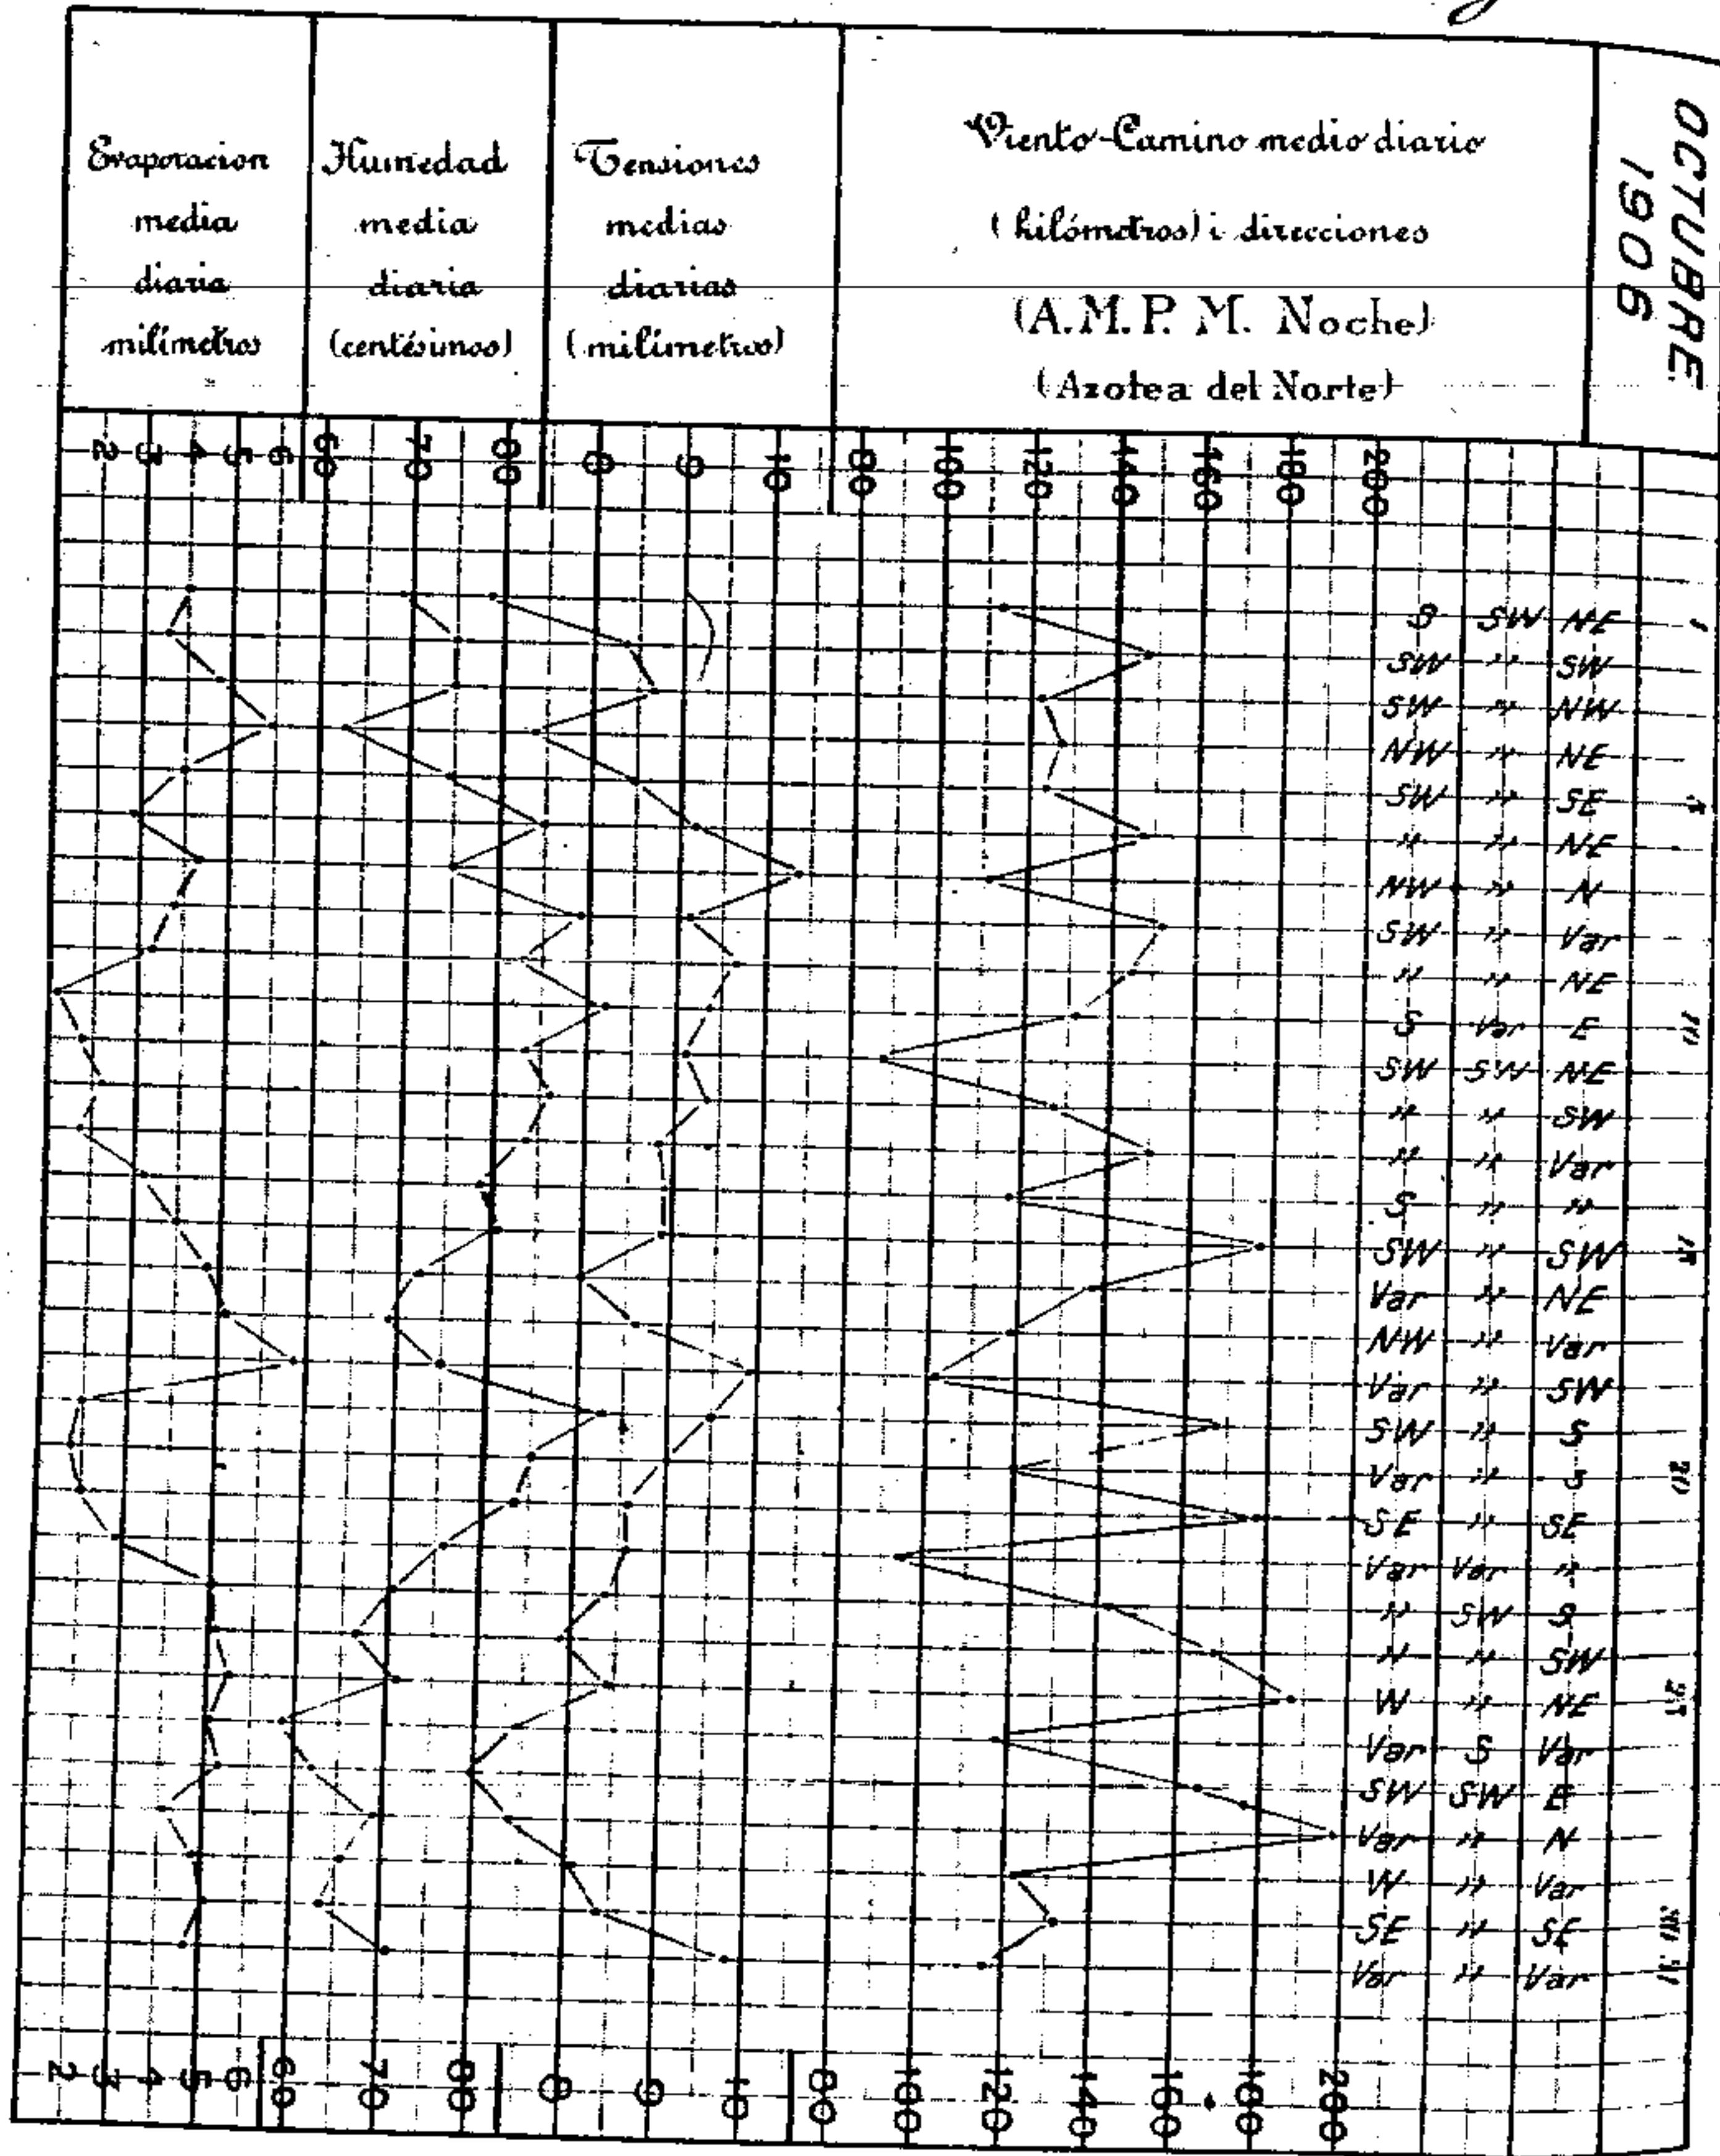 OCTUBRE
1906
Evaporacion
media
diaria
milímetros
Humedad
media
diaria
(centésimos)
Tensiones
medias
diarias
(milímetros)
Viento-Camino medio diario
(kilómetros) i direcciones
(A.M. P. M. Noche)
(Azotea del Norte)
2 3 4 5 6 60 70 80 8 9 10 80 100 120 140 160 180 200
S SW NE 1
SW " SW
SW " NW
NW " NE
SW " SE 5
" " NE
NW " N
SW " Var
" " NE
S Var E 10
SW SW NE
" " SW
" " Var
S " "
SW " SW 15
Var " NE
NW " Var
Var " SW
SW " S
Var " S 20
SE " SE
Var Var "
" SW S
" " SW
W " NE 25
Var S Var
SW SW E
Var " N
W " Var
SE " SE 30
Var " Var 31
2 3 4 5 6 60 70 80 8 9 10 80 100 120 140 160 180 200